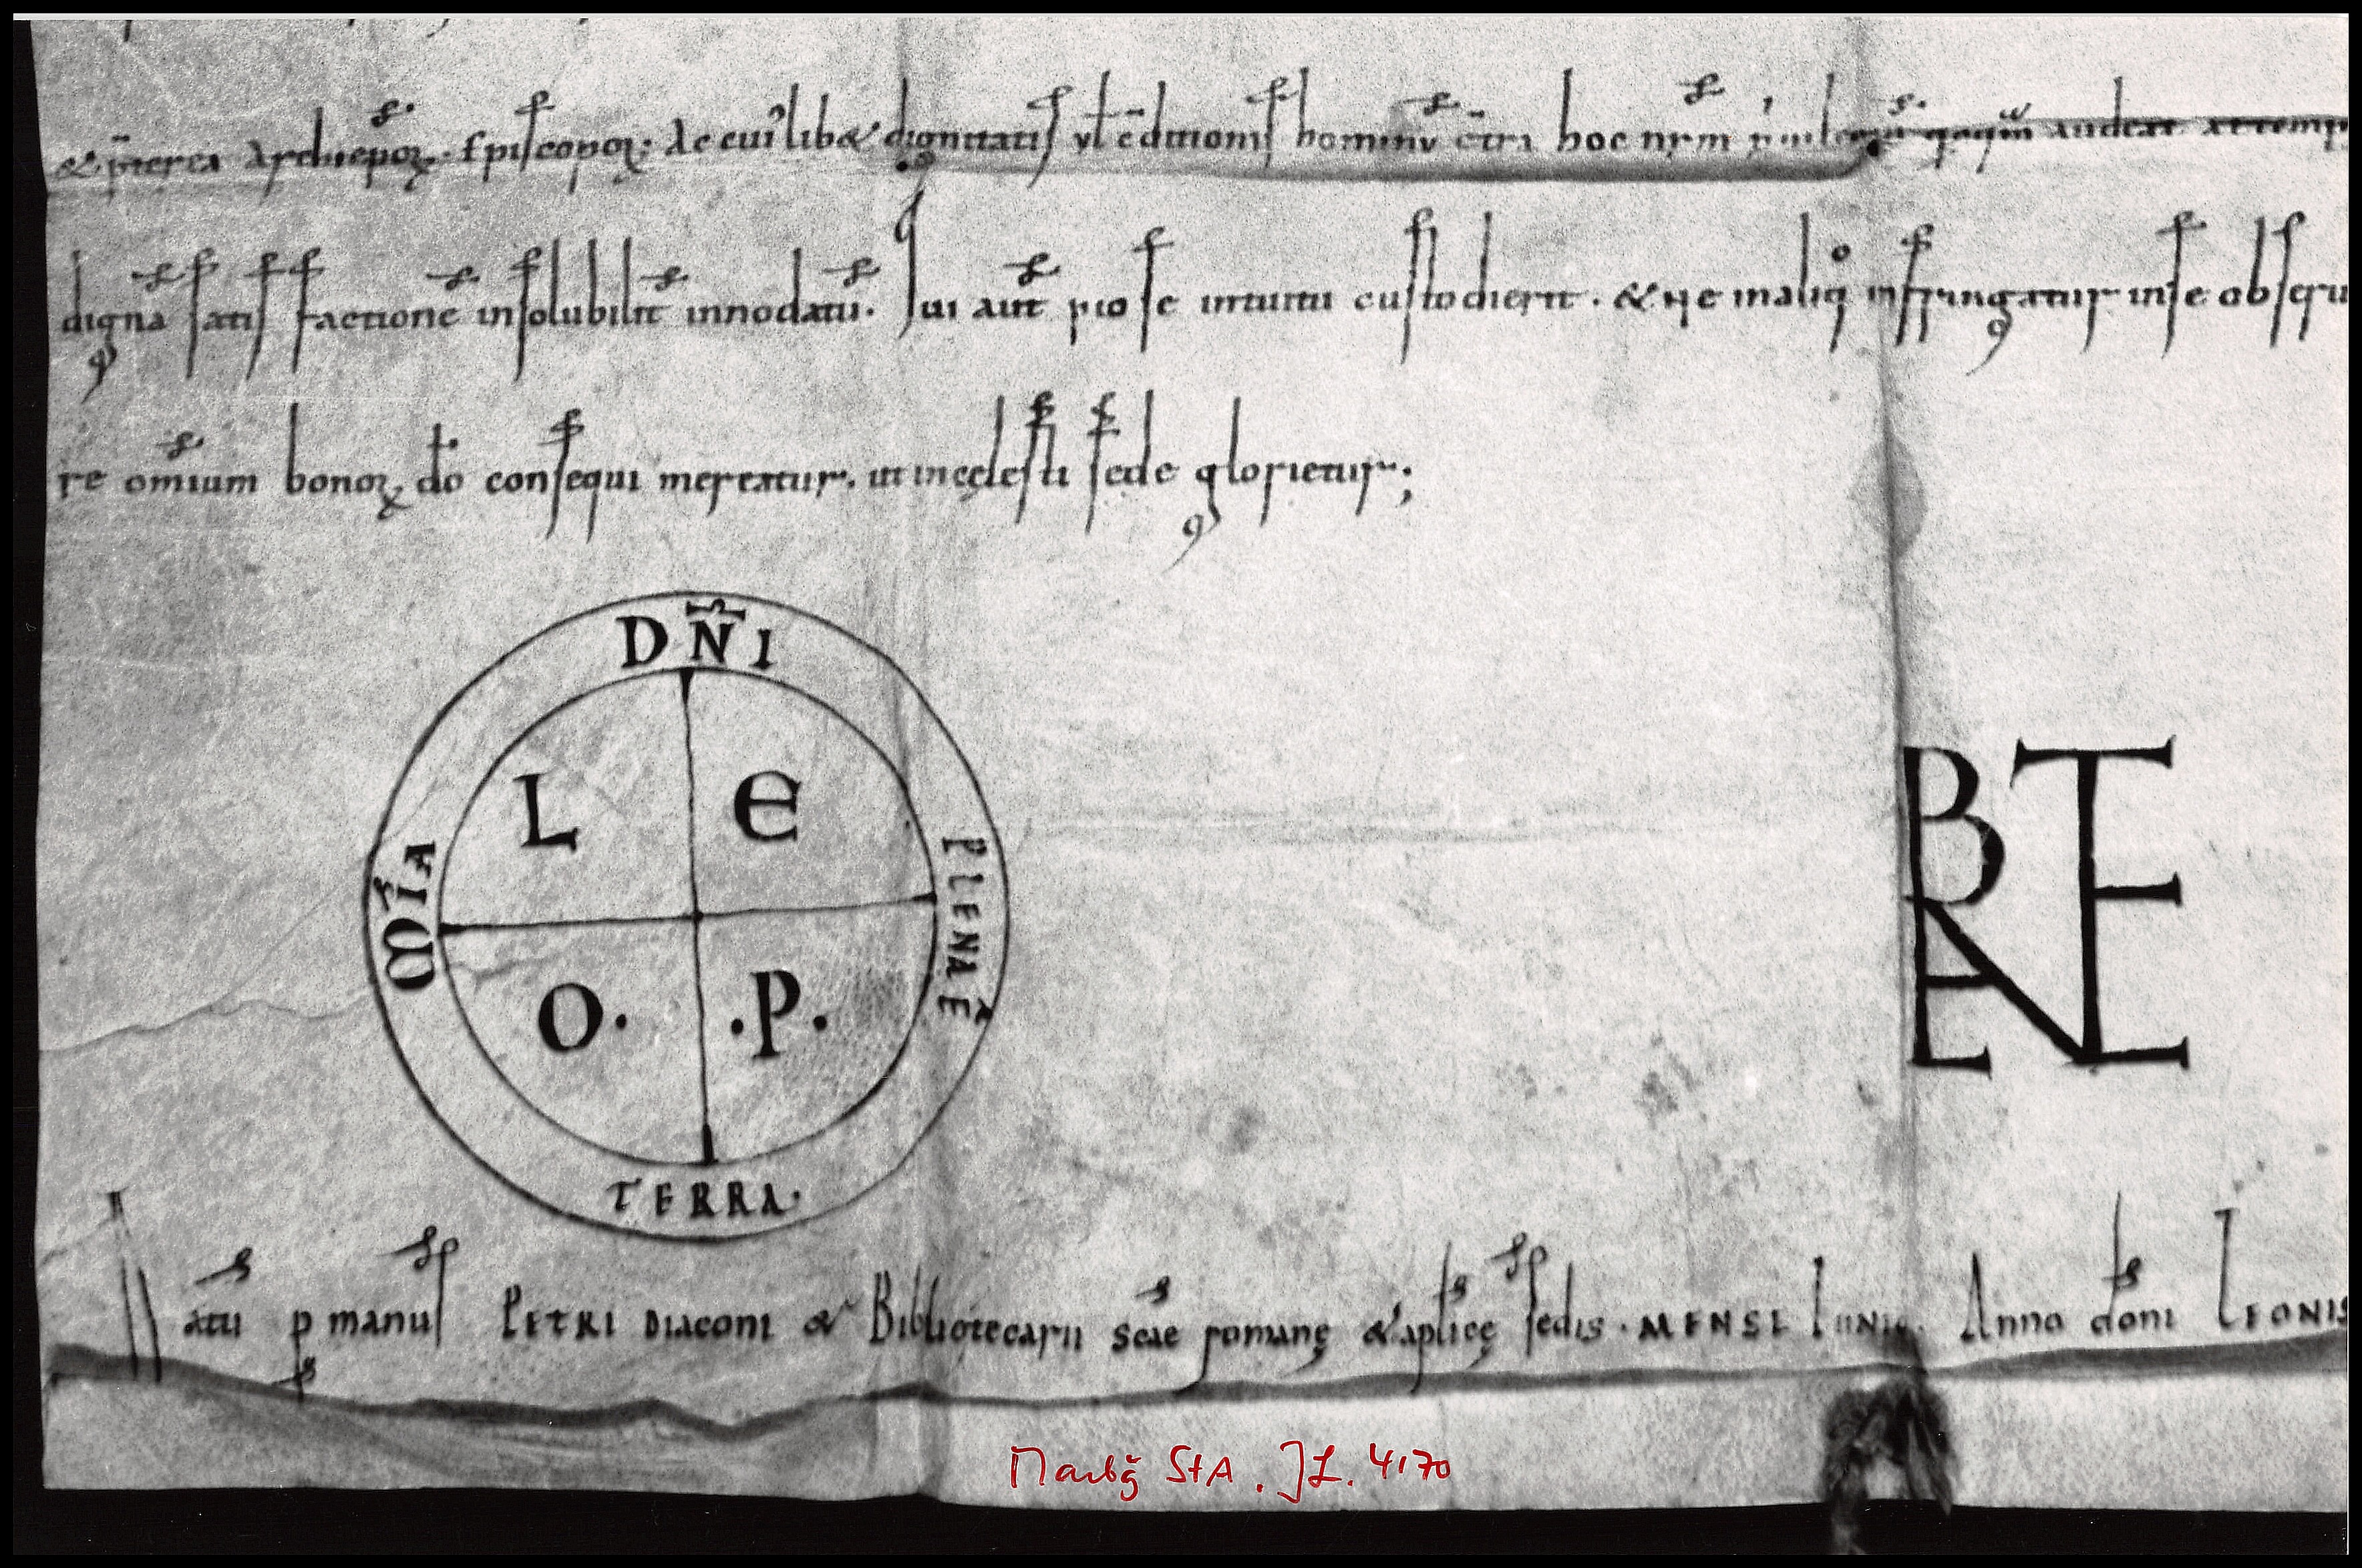 & p̄terea Archiep̄oꝝ. Episcopoꝝ. Ac cui᾽lib& dignitatis vl c̄ditionis hominū c̄tra hoc nr̄m
dignā satisfactionē insolubilit̄ innodatū. Qui aut̄ pio se intuitu custodierit. & ne maliḡ infringatur in se obsequ
re om̄ium bonoꝝ do consequi mereatur. ut in cęlesti sede glorietur;
DN̄I
L E
M̄IA
PLENA Ē
O. .P.
TERRA.
BENE
atū p manus PETRI DIaconi & Bibliotecarii scae romanę & aplicę sedis. MENSE IUNIO. Anno doni LEONIS
Marbg StA. JL. 4170